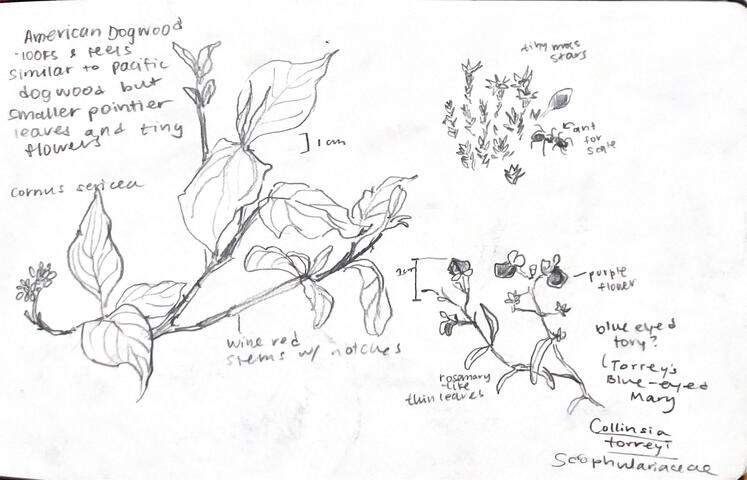 American Dogwood
-looks & feels
similar to pacific
dogwood but
smaller pointier
leaves and tiny
flowers
1 cm
cornus sericea
wine red
stems w/ notches
tiny moss
stars
ant for
scale
1cm
purple
flower
rosemary
-like
thin leaves
blue eyed
tory?
(Torrey's
Blue-eyed
Mary
Collinsia
torreyi
Scophulariaceae